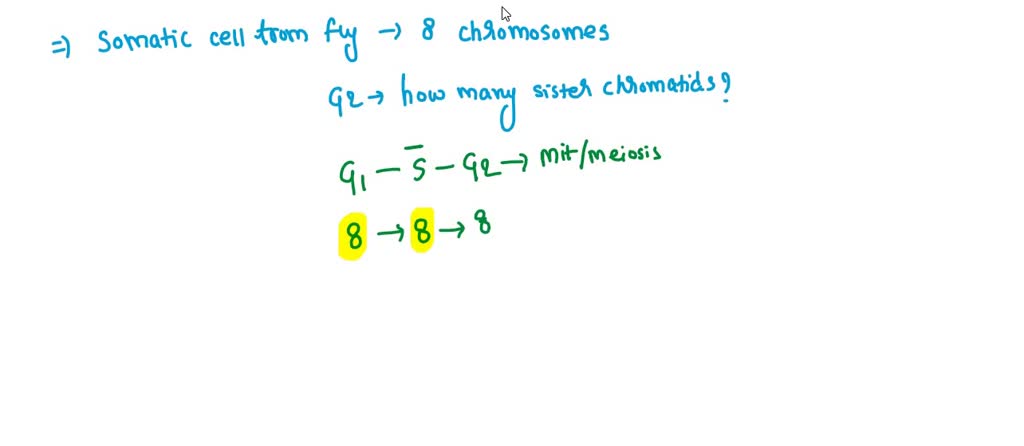 ⇒ Somatic cell from fly → 8 chromosomes
G2 → how many sister chromatids?
G1 — S — G2 → mit/meiosis
8 → 8 → 8